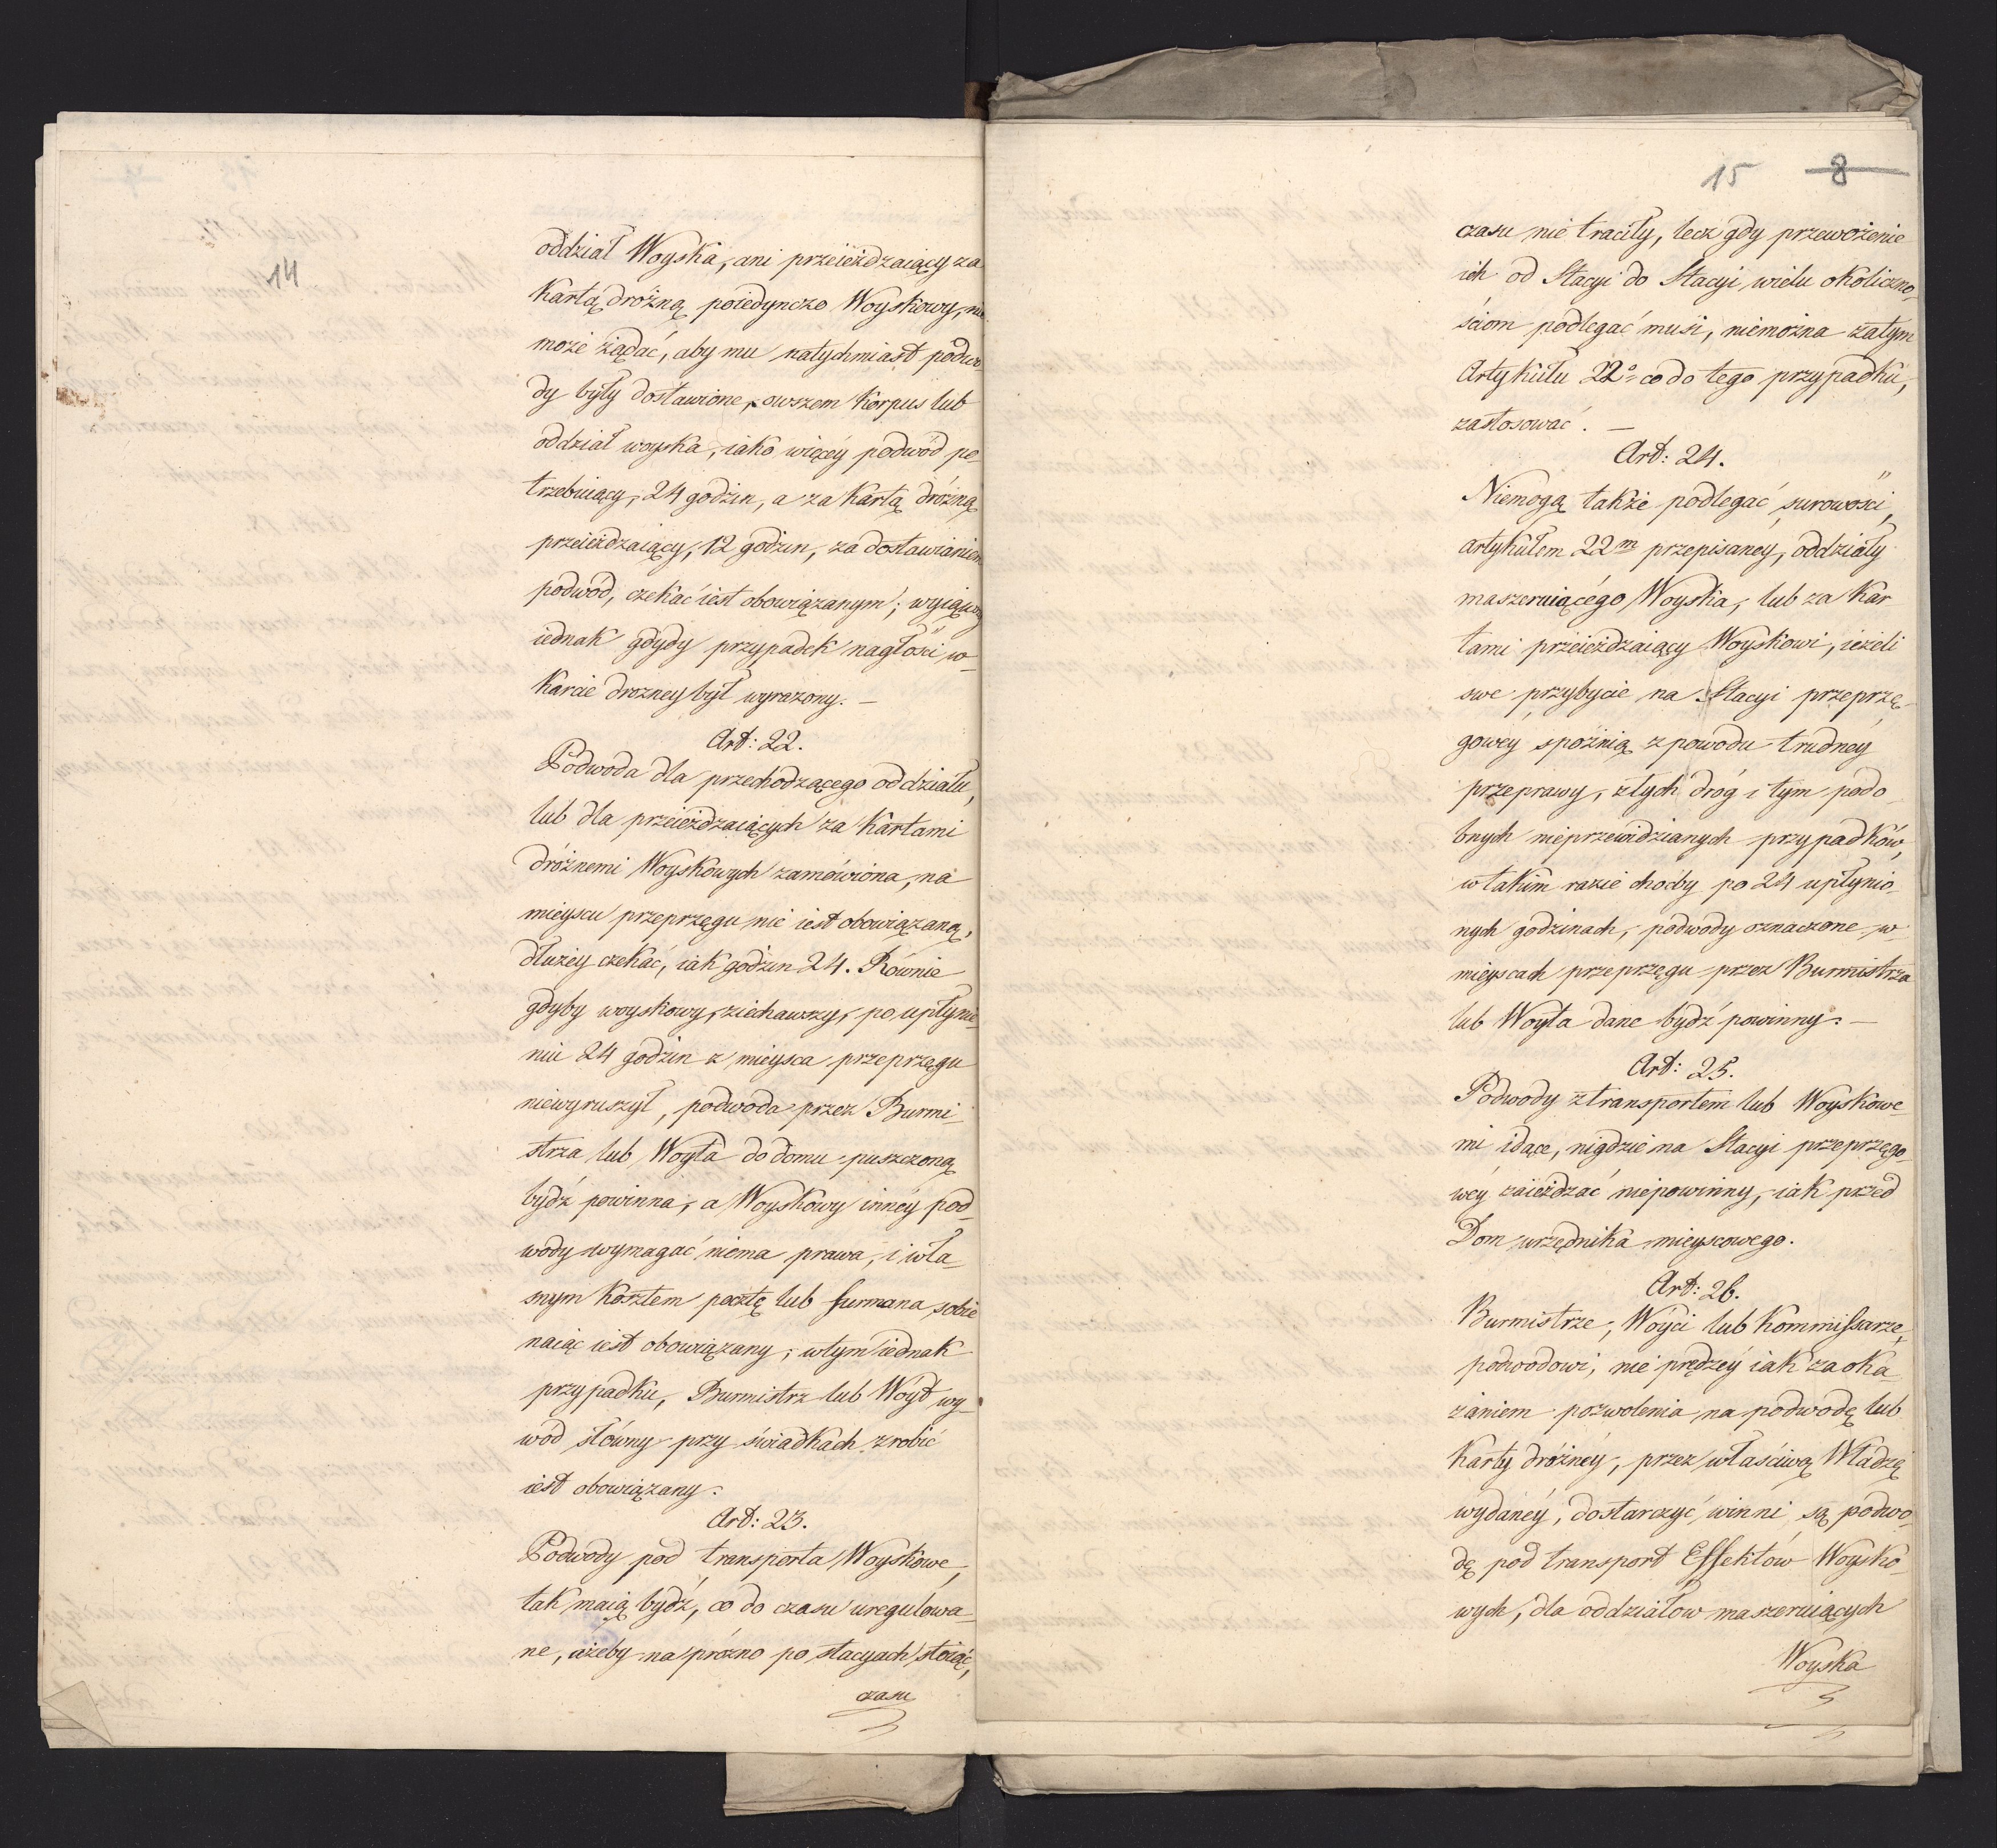 14
oddział Woyska, ani przeieżdzaiący za
Kartą dróżną poiedynczo Woyskowy, nie
może żądać, aby mu natychmiast podwo-
dy były dostawione, owszem Korpus lub
oddział woyska, iako więcéy podwód po-
trzebuiący, 24 godzin, a za Kartą dróżną
przeieżdzaiący, 12 godzin, za dostawianiem
podwód, czekać iest obowiązanym; wyiąwszy
iednak gdydy przypadek nagłości w-
Karcie drozney był wyrażony. —
Art: 22.
Podwoda dla przechodzącego oddziału,
lub dla przeieżdzaiących za Kartami
dróżnemi Woyskowych zamówiona, na
mieyscu przeprzęgu nie iest obowiązaną,
dłużey czekać, iak godzin 24. Równie
gdyby woyskowy, ziechawszy, po upłynie-
niu 24 godzin z mieysca przeprzęgu
niewyruszył, podwoda przez Burmi-
strza lub Woyta do domu puszczoną
bydź powinna, a Woyskowy innéy pod-
wody wymagać niema prawa, i wła-
snym Kosztem pocztę lub furmana sobie
naiąc iest obowiązany, w tym iednak
przypadku, Burmistrz lub Wóyt wy-
wod słówny przy świadkach zrobić
iest obowiązany.
Art: 23.
Podwody pod transporta Woyskowe,
tak maią bydź, co do czasu uregulowa-
ne, ażeby na prózno po stacyach stoiąc,
czasu
15 8
czasu nie traciły, lecz gdy przewożenie
ich od Stacyi do Stacyi wielu okoliczno-
ściom podlegać musi, niemożna zatym
Artykułu 22º co do tego przypadku,
zastosować. —
Art: 24.
Niemogą także podlegać surowości,
artykułem 22m przepisaney, oddziały
maszeruiącégo Woyska, lub za Kar-
tami przeieżdzaiący Woyskowi, ieżeli
swe przybycie na Stacyi przeprzę-
gowéy spóźnią z powodu trudnéy
przeprawy, złych dróg i tym podo-
bnych nieprzewidzianych przypadków,
w takim razie choćby po 24 upłynio-
nych godzinach, podwody oznaczone w-
mieyscach przeprzęgu przez Burmistrza
lub Woyta dane bydź powinny. —
Art: 25.
Podwody z transportem lub Woyskowe-
mi idące, nigdzie na Stacyi przeprzęgo-
wéy zaieżdzać niepowinny, iak przed
Dom urzędnika mieyscowego.
Art: 26.
Burmistrze, Wóyci lub Kommissarze,
podwodowi, nie prędzéy iak za oka-
zaniem pozwolenia na podwodę lub
Karty dróżnéy, przez właściwą Władzę
wydanéy, dostarczyć winni są podwo-
dę pod transport Effektów Woysko-
wych, dla oddziałow maszeruiących
Woyska